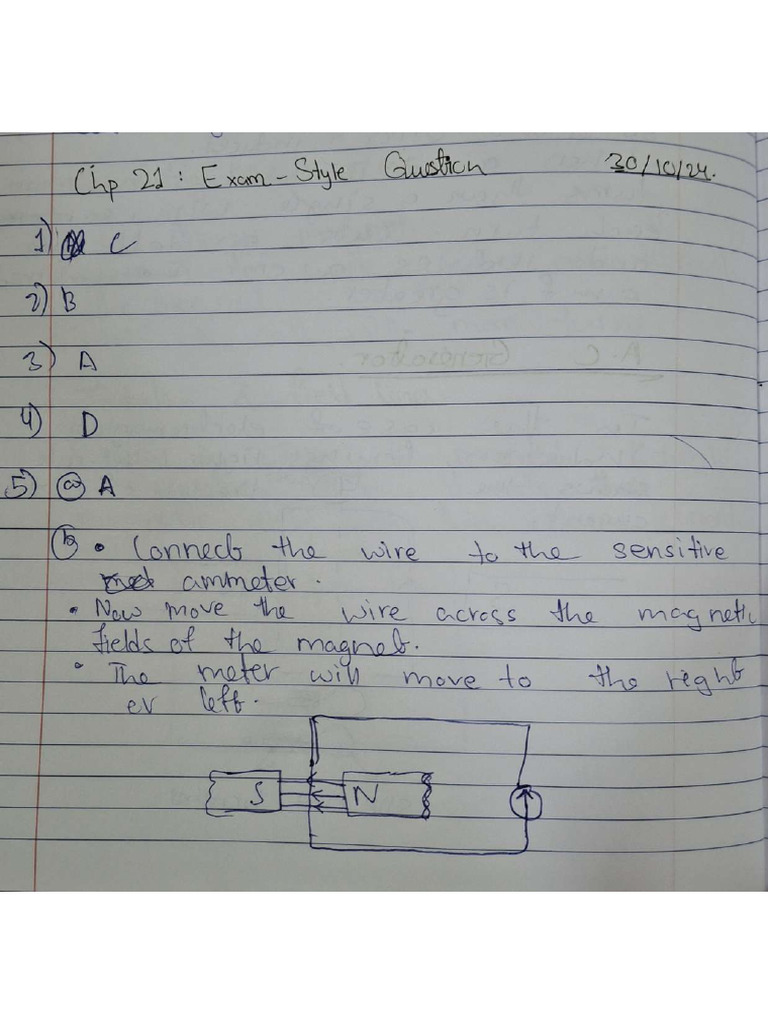 Chp 21: Exam-Style Question 30/10/24.
1) C
2) B
3) A
4) D
5) (a) A
(b) • Connect the wire to the sensitive
ammeter.
• Now move the wire across the magnetic
fields of the magnet.
• The meter will move to the right
or left.
S N
A.C Generator